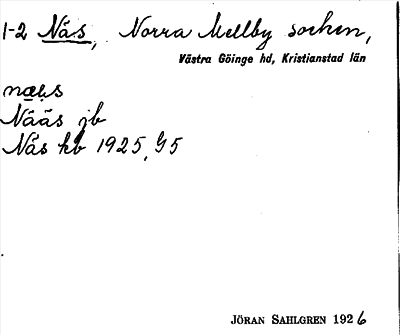 1-2 Näs, Norra Mellby socken,
Västra Göinge hd, Kristianstad län
Nääs jb
Näs kb 1925, G5
JÖRAN SAHLGREN 1926